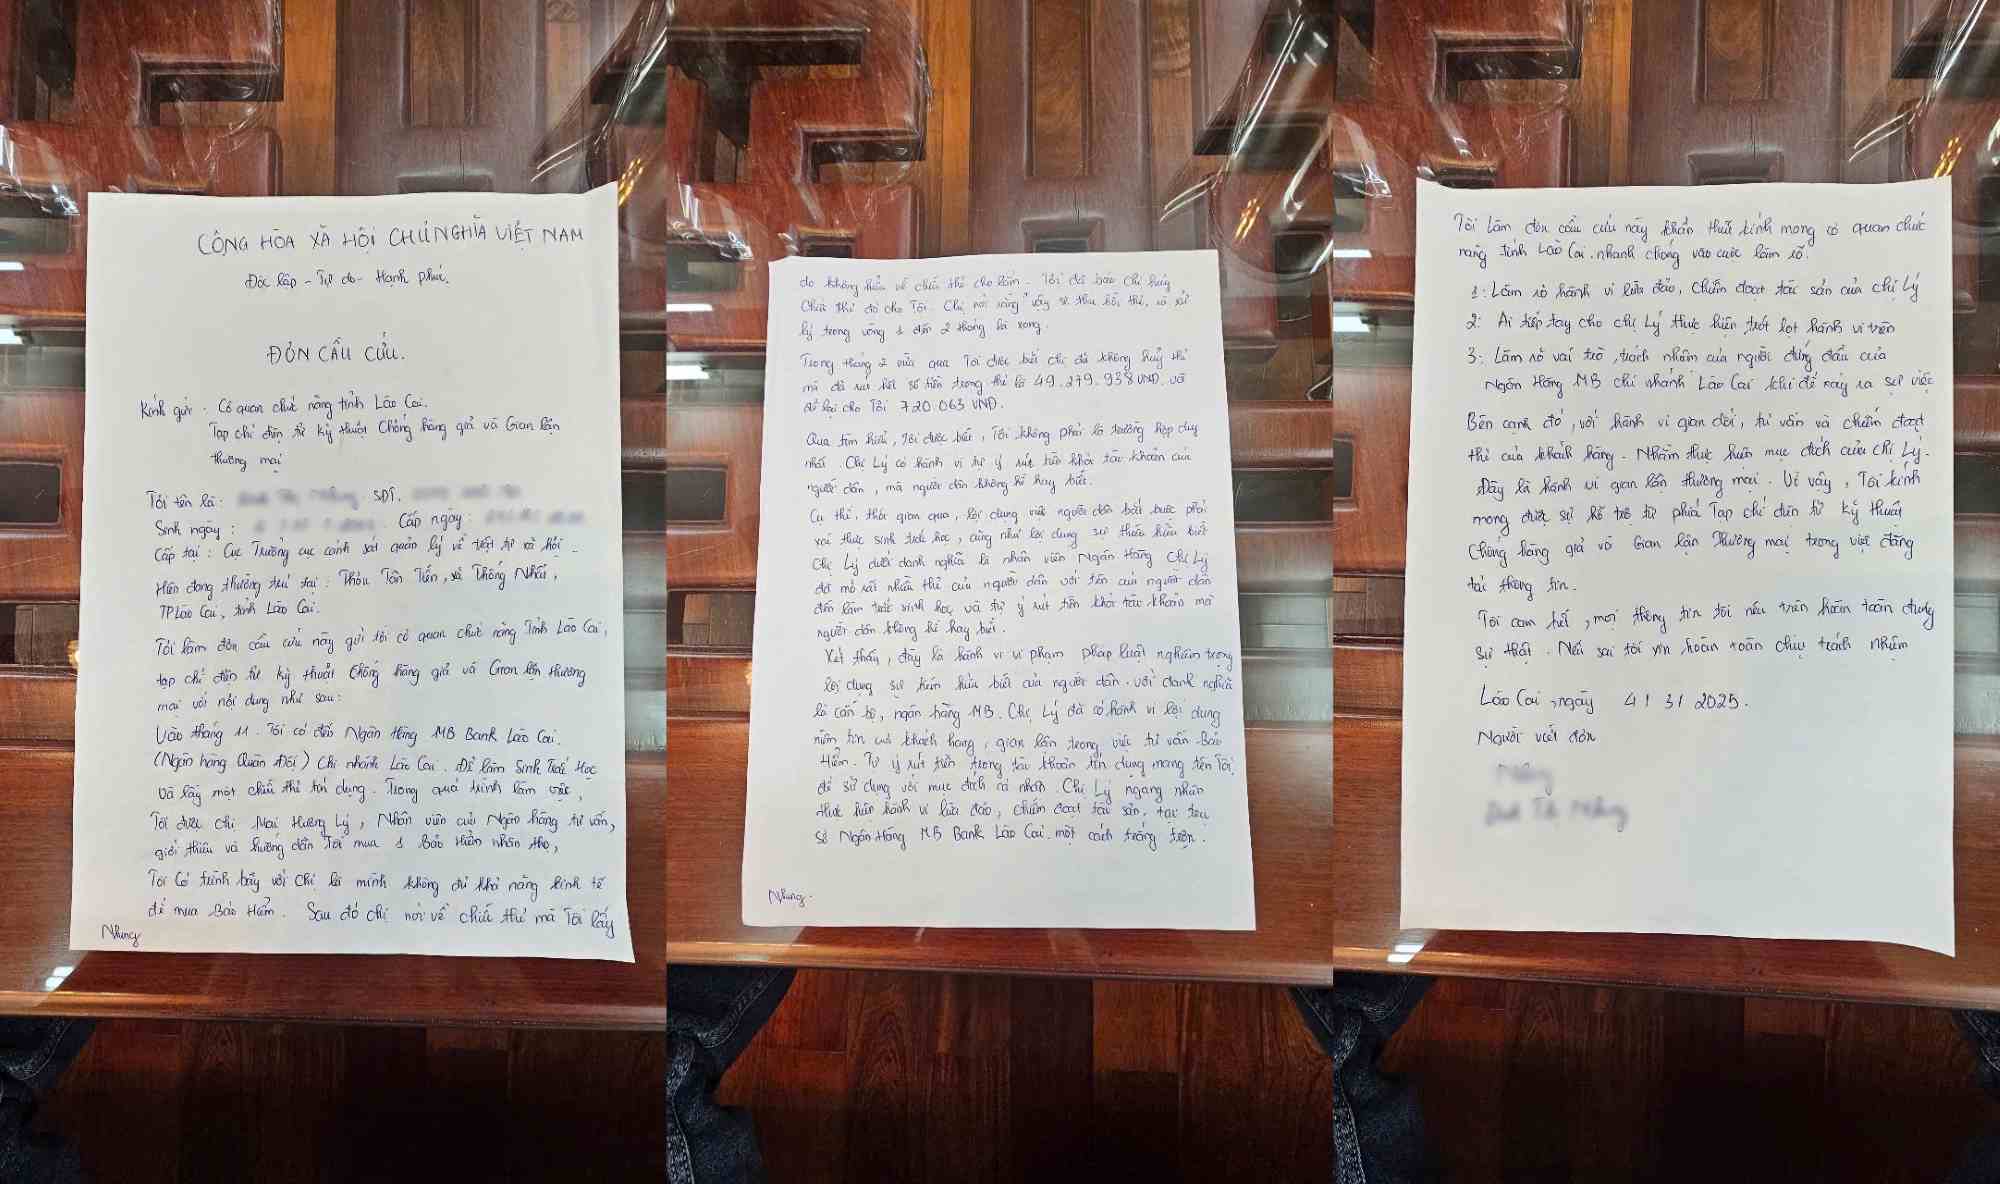 CỘNG HÒA XÃ HỘI CHỦ NGHĨA VIỆT NAM
Độc lập - Tự do - Hạnh phúc.
ĐƠN CẦU CỨU.
Kính gửi. Cơ quan chức năng tỉnh Lào Cai.
Tạp chí điện tử kỹ thuật Chống hàng giả và Gian lận
thương mại
Tôi tên là: SĐT.
Sinh ngày: Cấp ngày:
Cấp tại: Cục Trưởng cục cảnh sát quản lý về trật tự xã hội -
Hiện đang thường trú tại: Thôn Tân Tiến, xã Thống Nhất,
TP Lào Cai, tỉnh Lào Cai.
Tôi làm đơn cầu cứu này gửi tới cơ quan chức năng Tỉnh Lào Cai,
tạp chí điện tử kỹ thuật Chống hàng giả và Gian lận thương
mại với nội dung như sau:
Vào tháng 11. Tôi có đến Ngân Hàng MB Bank Lào Cai.
(Ngân hàng Quân Đội) Chi nhánh Lào Cai. Để làm Sinh Trắc Học
và lấy một chiếc thẻ tín dụng. Trong quá trình làm việc,
Tôi được chị Mai Hương Lý, Nhân viên của Ngân hàng tư vấn,
giới thiệu và hướng dẫn Tôi mua 1 Bảo Hiểm nhân thọ,
Tôi Có trình bày với Chị là mình không đủ khả năng kinh tế
để mua Bảo Hiểm. Sau đó chị nói về chiếc thẻ mà Tôi lấy
Nhung
do không hiểu về chiếc thẻ cho lắm. Tôi đã bảo Chị huỷ
Chiếc thẻ đó cho Tôi. Chị nói rằng sẽ thu hồi thẻ, và xử
lý trong vòng 1 đến 2 tháng là xong.
Trong tháng 2 vừa qua Tôi được biết chị đã không huỷ thẻ
mà đã rút hết số tiền trong thẻ là 49.279.938 VND. và
để lại cho Tôi 720.063 VND.
Qua tìm hiểu, Tôi được biết, Tôi không phải là trường hợp duy
nhất. Chị Lý có hành vi tự ý rút tiền khỏi tài khoản của
người dân, mà người dân không hề hay biết.
Cụ thể, thời gian qua, lợi dụng việc người dân bắt buộc phải
xác thực sinh trắc học, cũng như lợi dụng sự thiếu hiểu biết
Chị Lý dưới danh nghĩa là nhân viên Ngân Hàng Chị Lý
đã mở rất nhiều thẻ của người dân với tên của người dân
đến làm trắc sinh học và tự ý rút tiền khỏi tài khoản mà
người dân không hề hay biết.
Xét thấy, đây là hành vi vi phạm pháp luật nghiêm trọng
lợi dụng sự thiếu hiểu biết của người dân. với danh nghĩa
là cán bộ, ngân hàng MB. Chị Lý đã có hành vi lợi dụng
niềm tin của khách hàng, gian lận trong việc tư vấn Bảo
Hiểm. Tự ý rút tiền trong tài khoản tín dụng mang tên Tôi,
để sử dụng với mục đích cá nhân. Chị Lý ngang nhiên
thực hiện hành vi lừa đảo, chiếm đoạt tài sản, tại trụ
sở Ngân Hàng MB Bank Lào Cai. một cách trắng trợn.
Nhung.
Tôi làm đơn cầu cứu này khẩn thiết kính mong cơ quan chức
năng tỉnh Lào Cai. nhanh chóng vào cuộc làm rõ.
1: Làm rõ hành vi lừa đảo, Chiếm đoạt tài sản của chị Lý
2: Ai tiếp tay cho chị Lý thực hiện trót lọt hành vi trên
3: Làm rõ vai trò, trách nhiệm của người đứng đầu của
Ngân Hàng MB chi nhánh Lào Cai khi để xảy ra sự việc
Bên cạnh đó, với hành vi gian dối, tư vấn và chiếm đoạt
thẻ của khách hàng. Nhằm thực hiện mục đích của chị Lý.
Đây là hành vi gian lận thương mại. Vì vậy, Tôi kính
mong được sự hỗ trợ từ phía Tạp chí điện tử kỹ thuật
Chống hàng giả và Gian lận Thương mại trong việc đăng
tải thông tin.
Tôi cam kết, mọi thông tin tôi nêu trên hoàn toàn đúng
sự thật. Nếu sai tôi xin hoàn toàn chịu trách nhiệm
Lào Cai, ngày 4/3/2025.
Người viết đơn